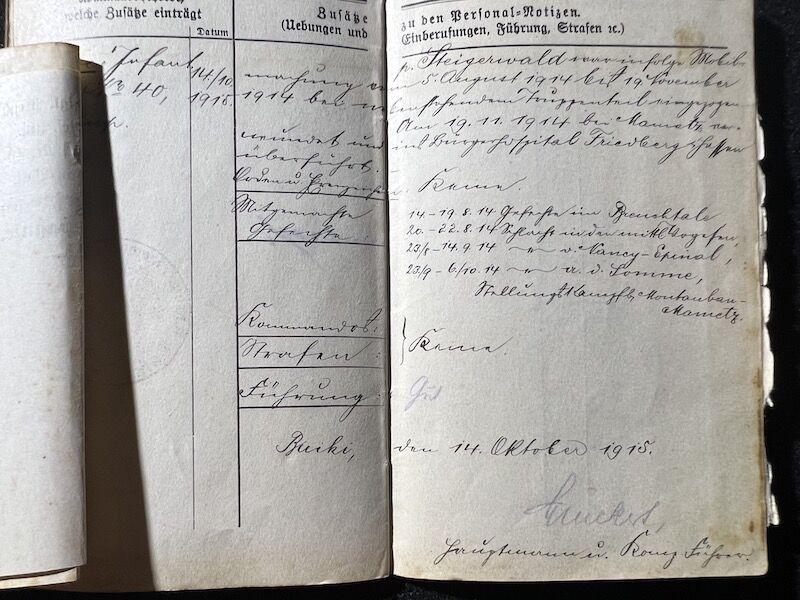 welche Zusätze einträgt
Datum
Zusätze
(Uebungen und
zu den Personal-Notizen.
Einberufungen, Führung, Strafen ꝛc.)
Infant
40,
14/10
1915
p. Steigerwald war infolge Mobil-
machung vom 5. August 1914 bis 19. November
1914 bei nebenstehendem Truppenteil eingezogen
Am 19.11.1914 bei Mametz ver-
wundet und ins Bürgerhospital Friedberg i/Hessen
überführt.
Orden u. Ehrenzeichen Keine.
Mitgemachte
Gefechte:
14–19.8.14 Gefechte im Breuschtale
20.–22.8.14 Schlacht in den mittl. Vogesen,
23/8–14.9.14 〃 v. Nancy-Epinal,
23/9–6/10.14 〃 a. d. Somme,
Stellungskämpfe Montauban-
Mametz.
Kommandos:
Strafen: } Keine.
Führung: Gut
den 14. Oktober 1915.
Hauptmann u. Komp Führer.